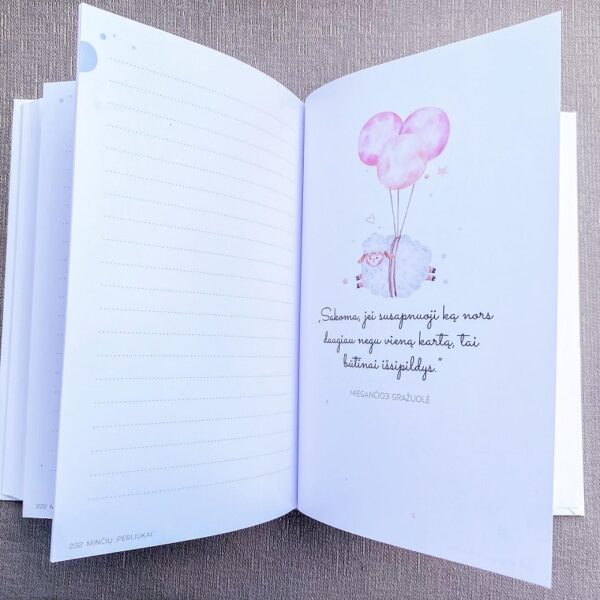 232 MINČIŲ „PERLIUKAI“
„Sakoma, jei susapnuoji ką nors
daugiau negu vieną kartą, tai
būtinai išsipildys.“
MIEGANČIOJI GRAŽUOLĖ
232 M